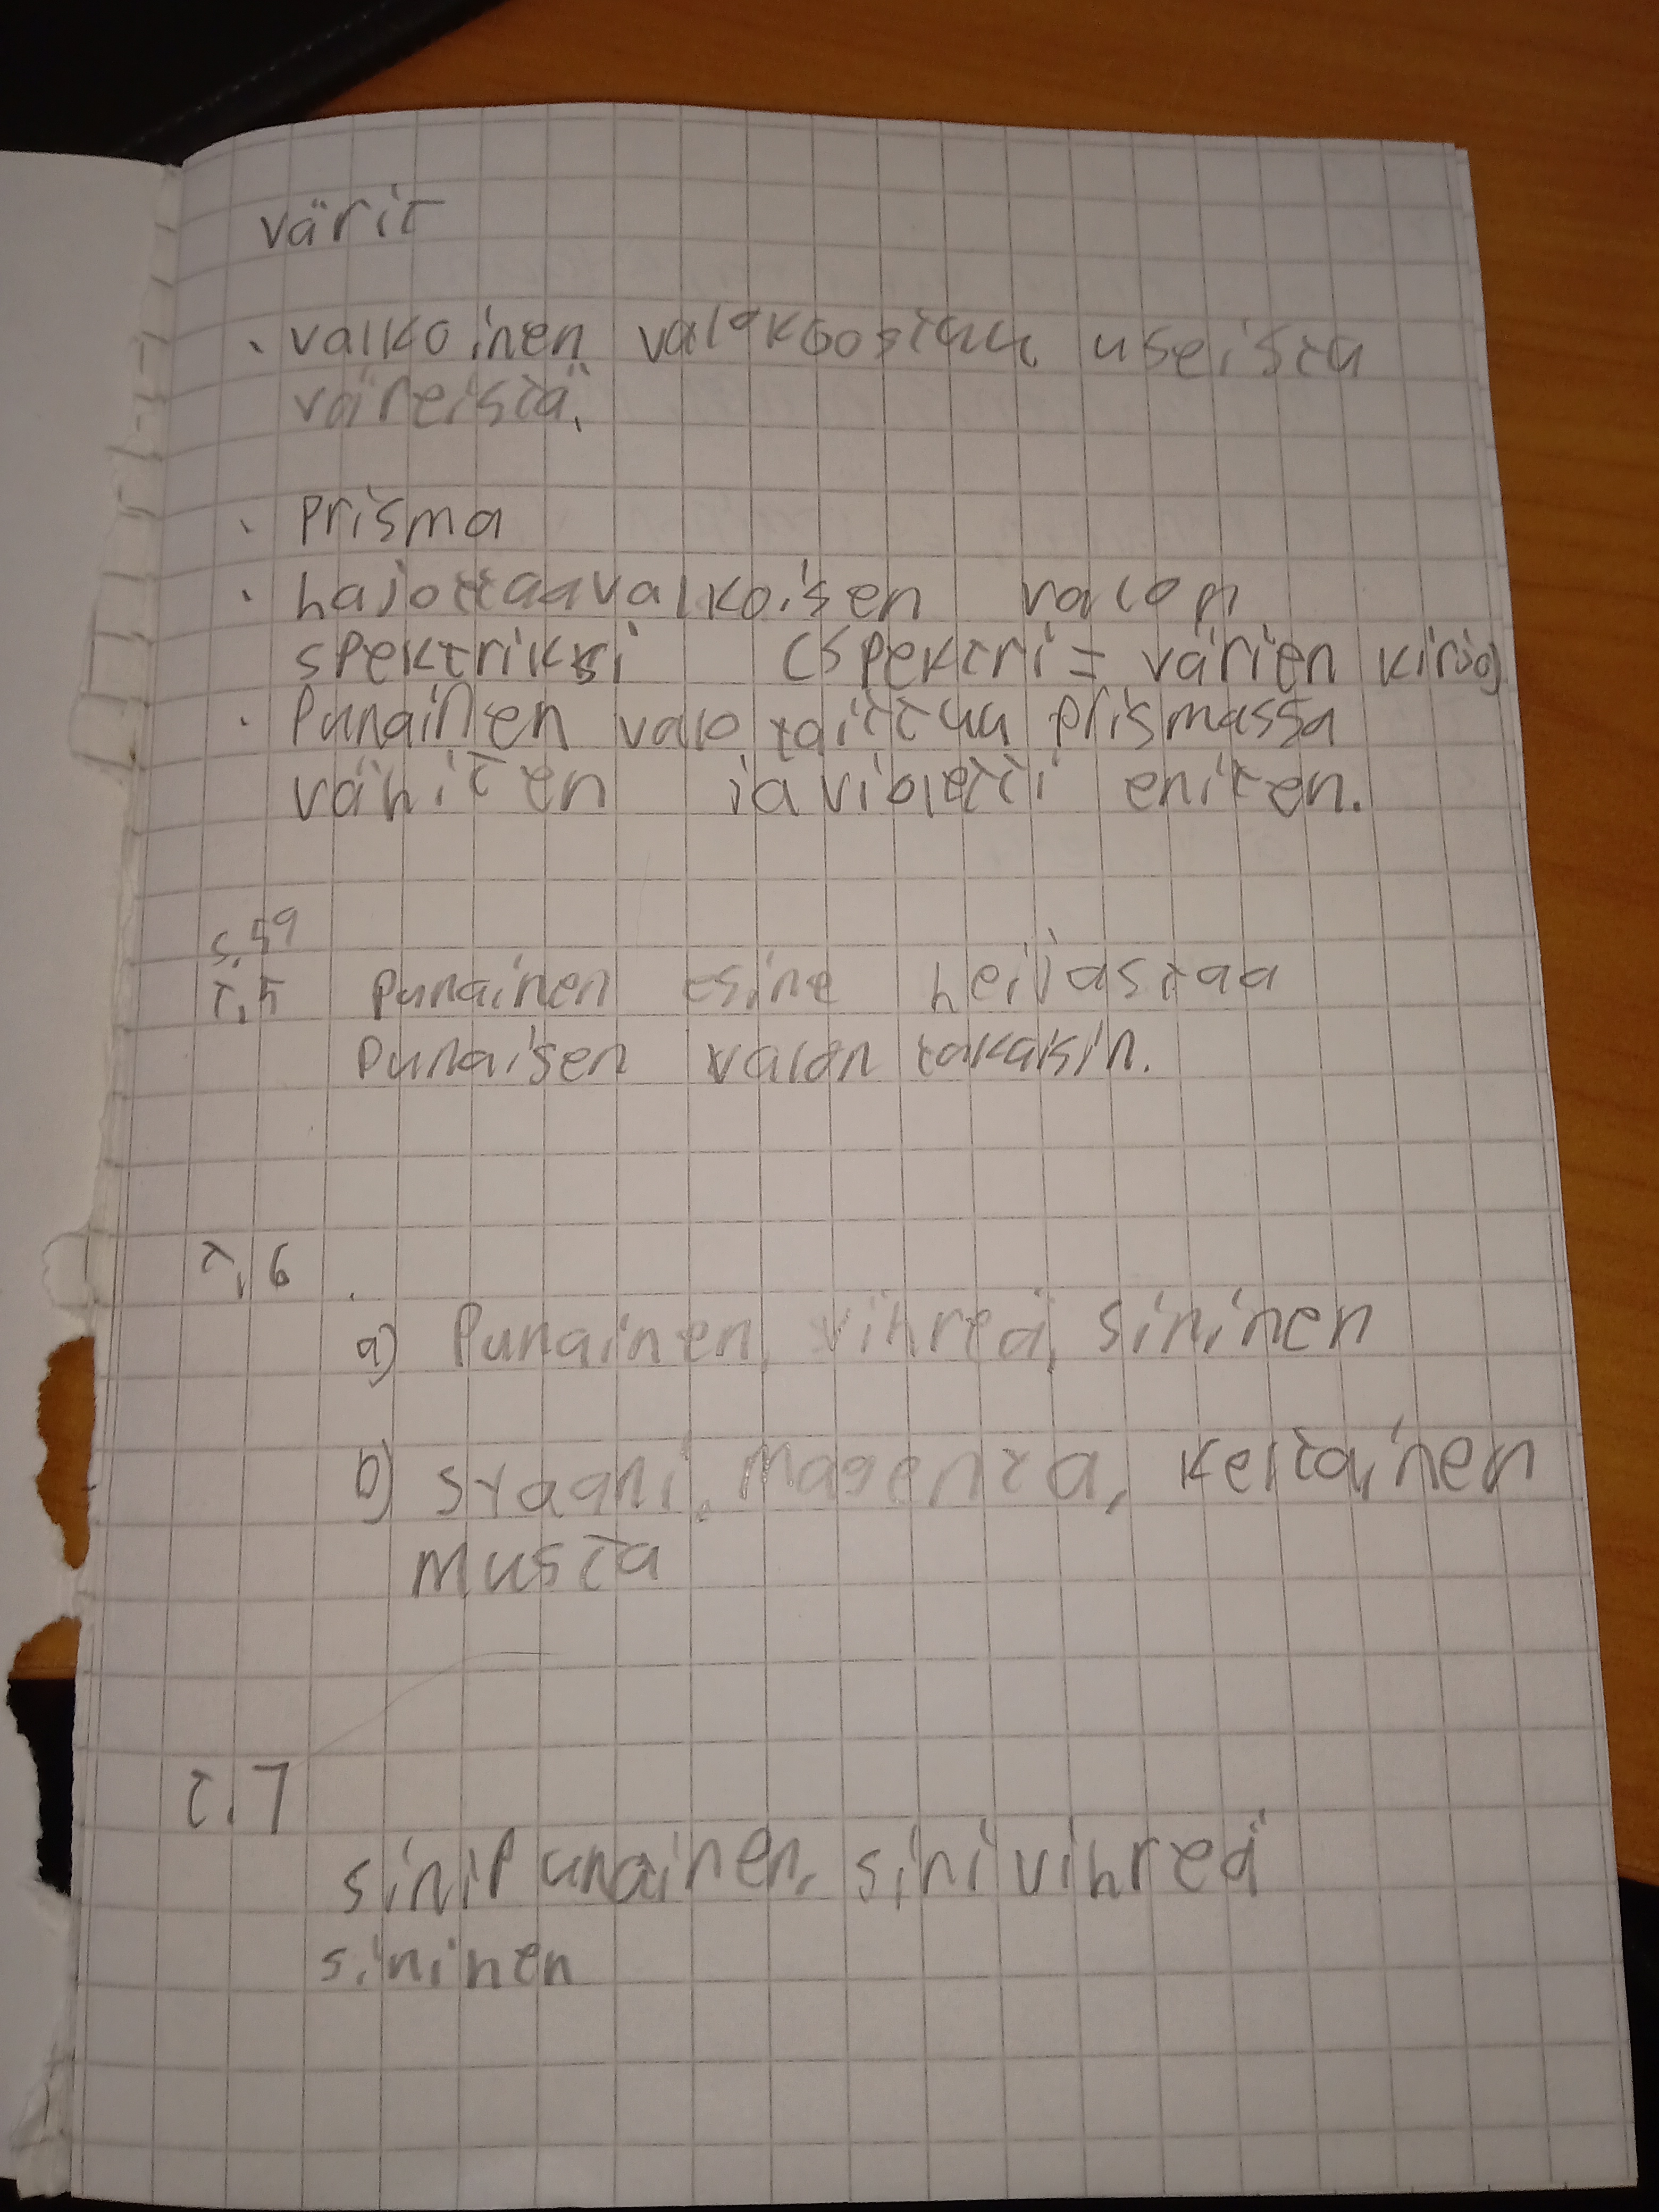 värit
· valkoinen valo koostuu useista
väreistä.
· Prisma
· hajottaa valkoisen valon
spektriksi (spektri = värien kirjo)
· Punainen valo taittuu prismassa
vähiten ja violetti eniten.
s. 59
T. 5 punainen esine heijastaa
punaisen valon takaisin.
T. 6
a) Punainen, vihreä, sininen
b) syaani, Magenta, keltainen
Musta
T. 7
sinipunainen, sinivihreä
sininen